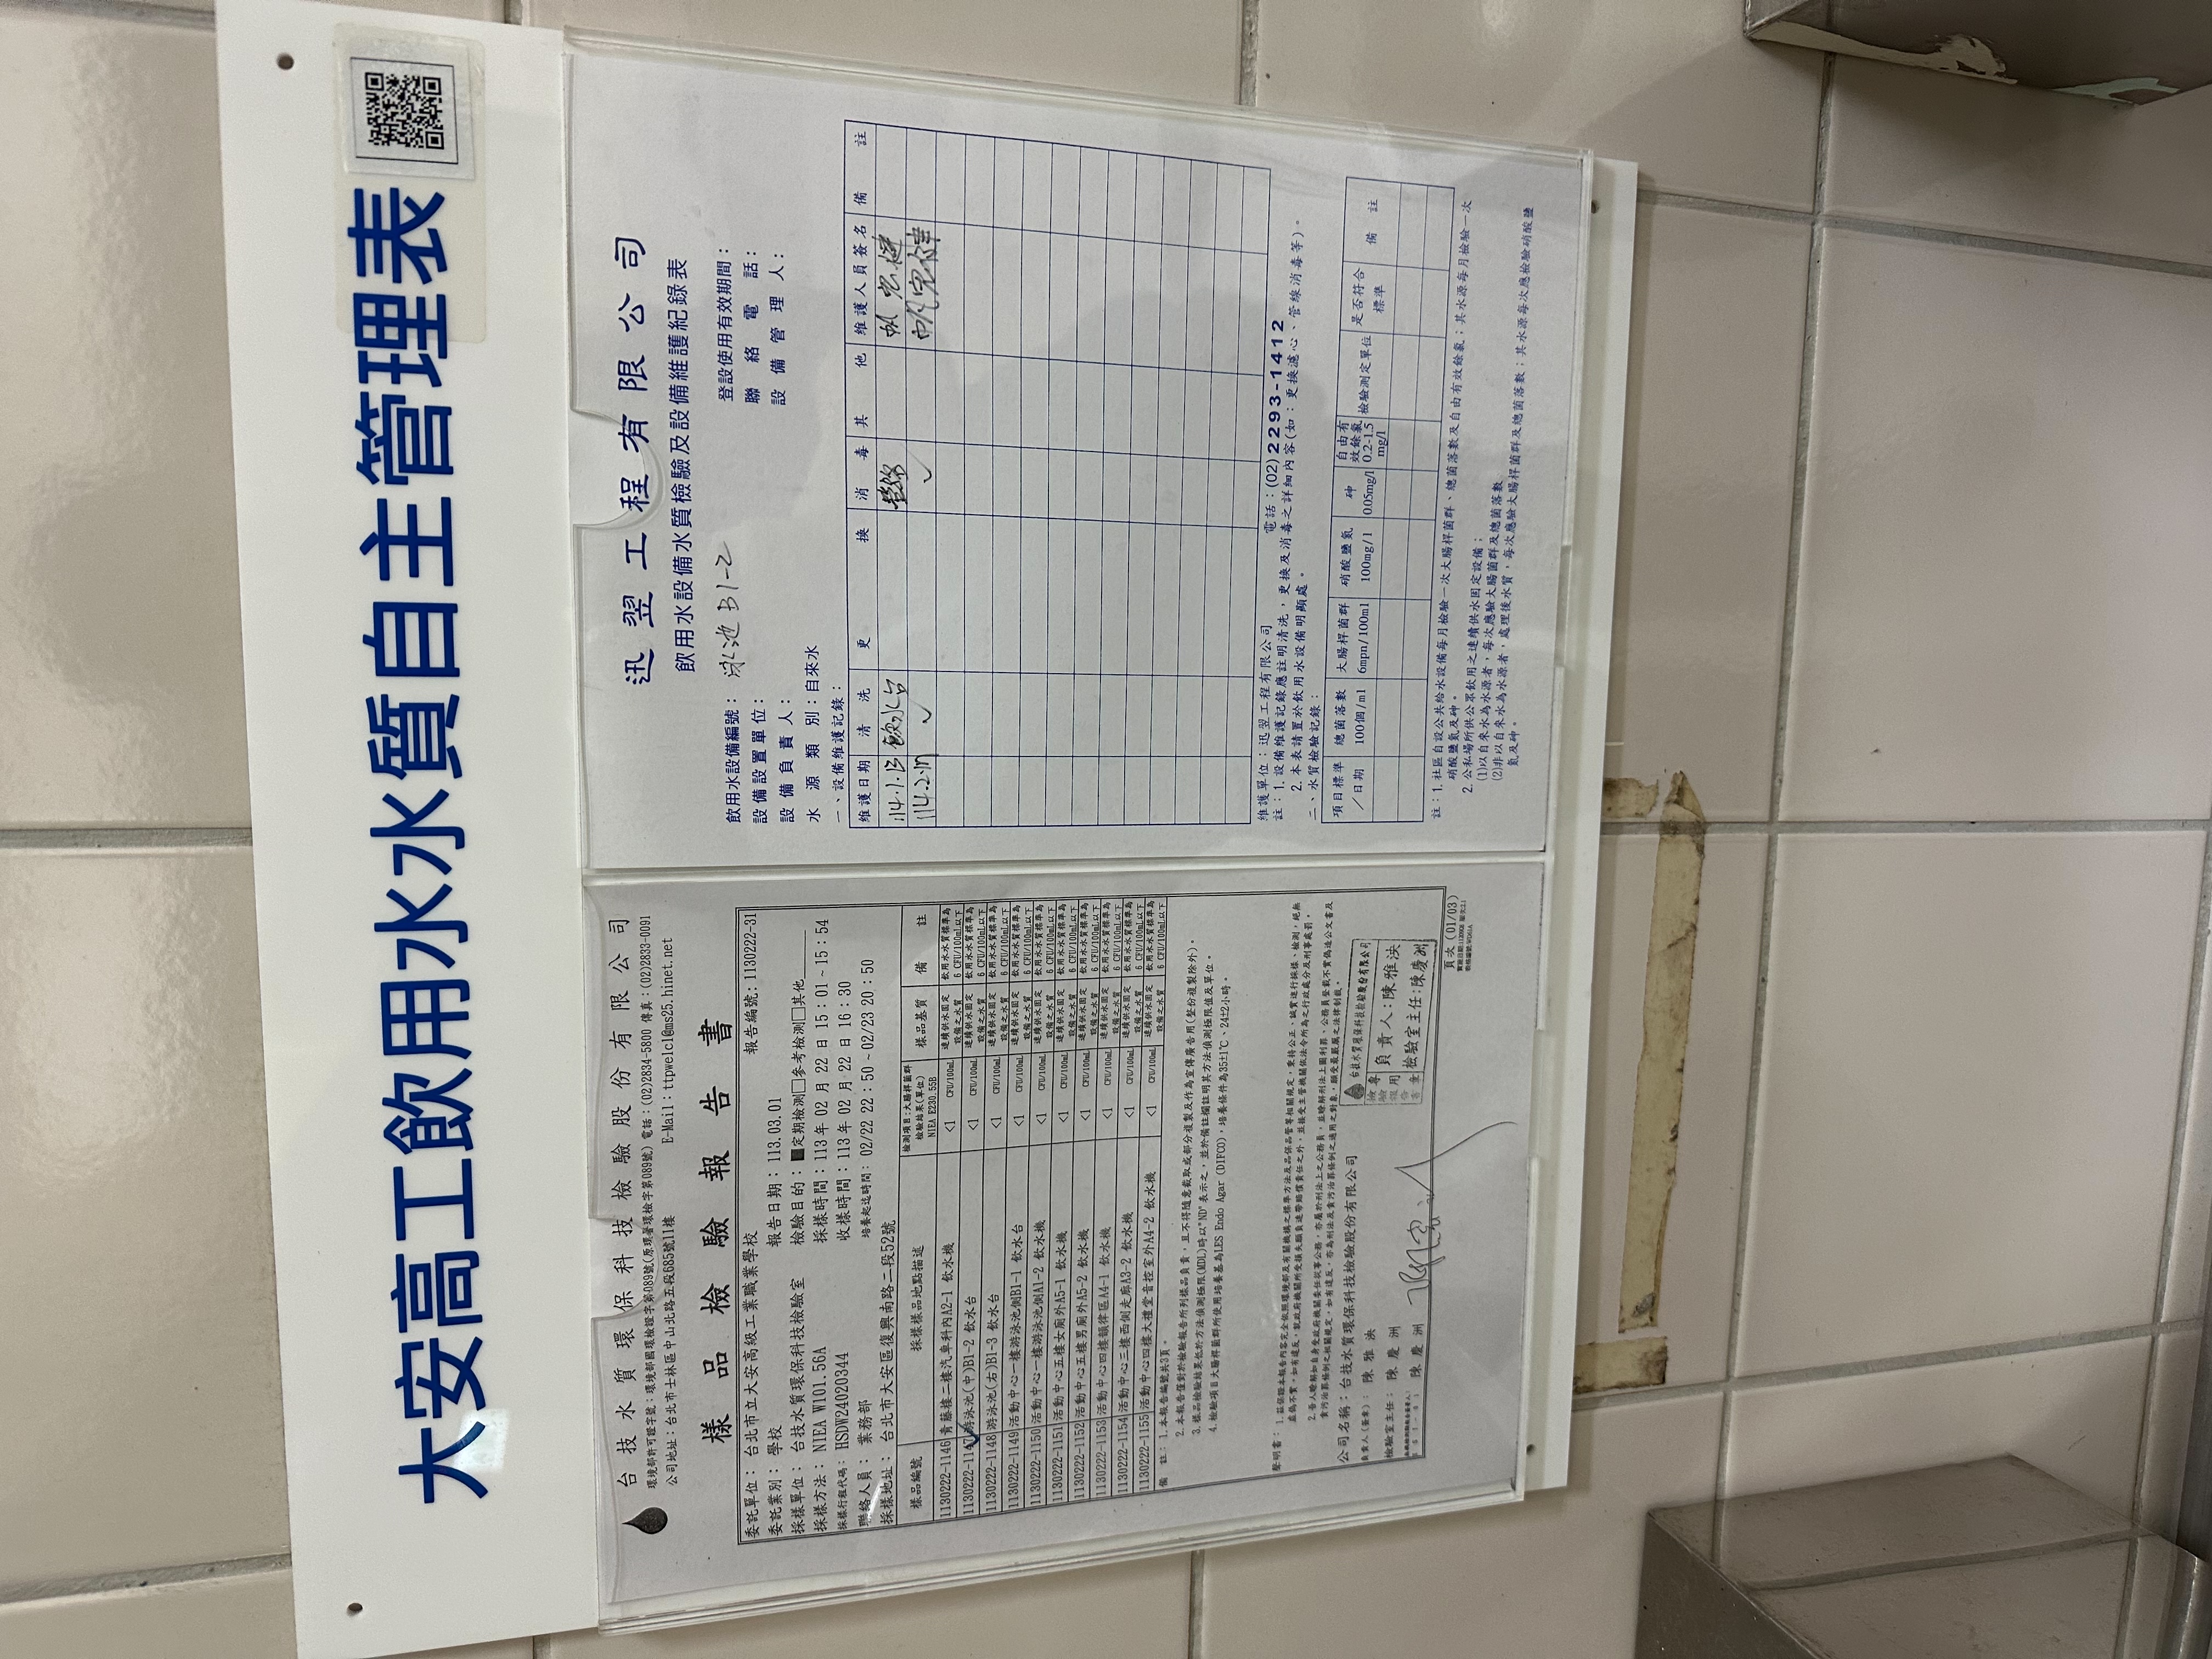 大安高工飲用水水質自主管理表
台技水質環保科技檢驗股份有限公司
環境部許可證字號：環境部國環檢證字第089號(原環署環檢字第089號) 電話：(02)2834-5800 傳真：(02)2833-0091
公司地址：台北市士林區中山北路五段685號11樓 E-Mail：ttpwelcl@ms25.hinet.net
樣品檢驗報告書
委託單位：台北市立大安高級工業職業學校 報告編號：1130222-31
委託業別：學校 報告日期：113.03.01
採樣單位：台技水質環保科技檢驗室 檢驗目的：■定期檢測□參考檢測□其他
採樣方法：NIEA W101.56A 採樣時間：113 年 02 月 22 日 15：01 ~ 15：54
採樣行程代碼：HSDW24020344 收樣時間：113 年 02 月 22 日 16：30
聯絡人員：業務部 培養起迄時間：02/22 22：50 ~ 02/23 20：50
採樣地址：台北市大安區復興南路二段52號
樣品編號 採樣樣品地點描述 檢測項目:大腸桿菌群 檢驗結果(單位) NIEA E230.55B 樣品基質 備註
1130222-1146 青藤樓二樓汽車科內A2-1 飲水機 <1 CFU/100mL 連續供水固定設備之水質 飲用水水質標準為 6 CFU/100mL以下
1130222-1147 游泳池(中)B1-2 飲水台 <1 CFU/100mL 連續供水固定設備之水質 飲用水水質標準為 6 CFU/100mL以下
1130222-1148 游泳池(右)B1-3 飲水台 <1 CFU/100mL 連續供水固定設備之水質 飲用水水質標準為 6 CFU/100mL以下
1130222-1149 活動中心一樓游泳池側B1-1 飲水台 <1 CFU/100mL 連續供水固定設備之水質 飲用水水質標準為 6 CFU/100mL以下
1130222-1150 活動中心一樓游泳池側A1-2 飲水機 <1 CFU/100mL 連續供水固定設備之水質 飲用水水質標準為 6 CFU/100mL以下
1130222-1151 活動中心五樓女廁外A5-1 飲水機 <1 CFU/100mL 連續供水固定設備之水質 飲用水水質標準為 6 CFU/100mL以下
1130222-1152 活動中心五樓男廁外A5-2 飲水機 <1 CFU/100mL 連續供水固定設備之水質 飲用水水質標準為 6 CFU/100mL以下
1130222-1153 活動中心四樓韻律區A4-1 飲水機 <1 CFU/100mL 連續供水固定設備之水質 飲用水水質標準為 6 CFU/100mL以下
1130222-1154 活動中心三樓西側走廊A3-2 飲水機 <1 CFU/100mL 連續供水固定設備之水質 飲用水水質標準為 6 CFU/100mL以下
1130222-1155 活動中心四樓大禮堂音控室外A4-2 飲水機 <1 CFU/100mL 連續供水固定設備之水質 飲用水水質標準為 6 CFU/100mL以下
備 註：1.本報告編號共3頁。
2.本報告僅對於檢驗報告所列樣品負責，且不得隨意截取或部分複製及作為宣傳廣告用(整份複製除外)。
3.樣品檢驗結果低於方法偵測極限(MDL)時以"ND"表示之，並於備註欄註明其方法偵測極限值及單位。
4.檢驗項目大腸桿菌群所使用培養基為LES Endo Agar (DIFCO)，培養條件為35±1℃、24±2小時。
公司名稱：台技水質環保科技檢驗股份有限公司
負責人(簽章)：陳雅泱
檢驗室主任：陳慶洲
陳慶洲
台技水質環保科技檢驗股份有限公司
負責人：陳雅泱
檢驗室主任：陳慶洲
頁次 (01/03)
迅翌工程有限公司
飲用水設備水質檢驗及設備維護紀錄表
飲用水設備編號：泳池B1-2 登設使用有效期間：
設備設置單位： 聯絡電話：
設備負責人： 設備管理人：
水源類別：自來水
一、設備維護記錄：
維護日期 清洗 更換 消毒 其他 維護人員簽名 備註
114.1.13 飲水台
114.2.17 ✓ ✓
維護單位：迅翌工程有限公司 電話：(02)2293-1412
註：1.設備維護記錄應註明清洗，更換及消毒之詳細內容(如：更換濾心、管線消毒等)。
2.本表請置於飲用水設備明顯處。
二、水質檢驗記錄：
項目標準／日期 總菌落數 100個/ml 大腸桿菌群 6mpn/100ml 硝酸鹽氮 100mg/l 砷 0.05mg/l 自由有效餘氯 0.2-1.5 mg/l 檢驗測定單位 是否符合標準 備註
註：1.社區自設公共給水設備每月檢驗一次大腸桿菌群、總菌落數及自由有效餘氯；其水源每月檢驗一次
硝酸鹽氮及砷。
2.公私場所供公眾飲用之連續供水固定設備：
(1)以自來水為水源者，每次應驗大腸菌群及總菌落數
(2)非以自來水為水源者，處理後水質，每次應驗大腸桿菌群及總菌落數；其水源每次應檢驗硝酸鹽
氮及砷。